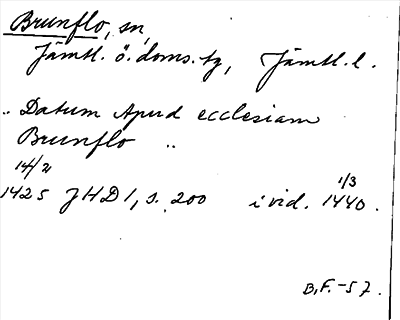 Brunflo, sn,
Jämtl. ö. doms. tg, Jämtl. l.
„ Datum Apud ecclesiam
Brunflo „
14/2 1/3
1425 JHD 1, s. 200 i vid. 1440.
B.F. -57.